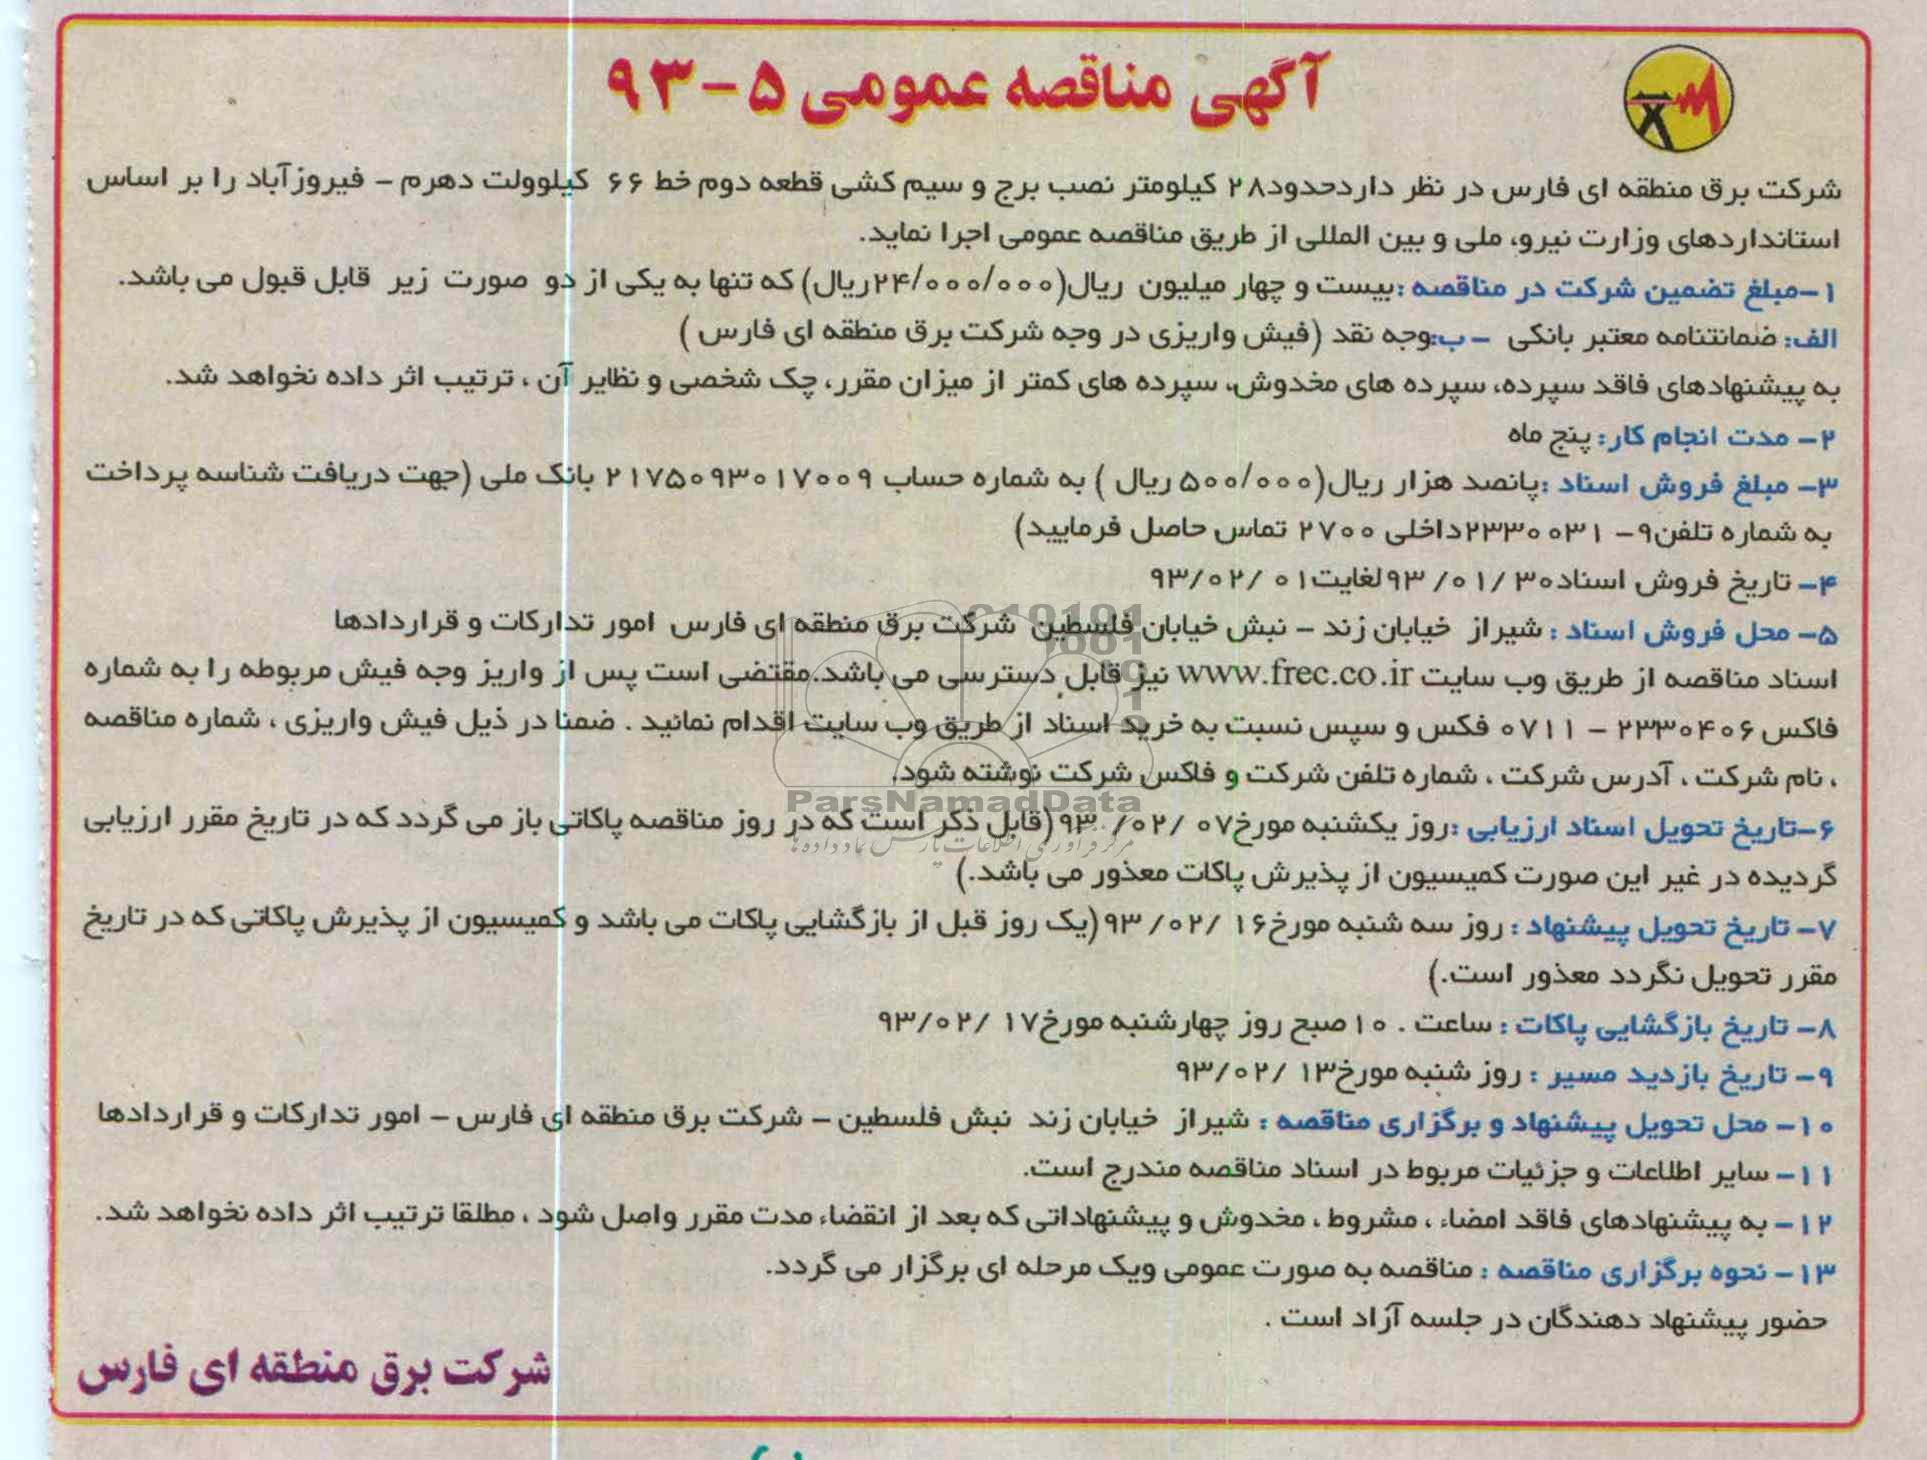 آگهی مناقصه عمومی ۵-۹۳
شرکت برق منطقه ای فارس در نظر داردحدود۲۸ کیلومتر نصب برج و سیم کشی قطعه دوم خط ۶۶ کیلوولت دهرم – فیروزآباد را بر اساس
استانداردهای وزارت نیرو، ملی و بین المللی از طریق مناقصه عمومی اجرا نماید.
۱–مبلغ تضمین شرکت در مناقصه :بیست و چهار میلیون ریال(۲۴/۰۰۰/۰۰۰ریال) که تنها به یکی از دو صورت زیر قابل قبول می باشد.
الف: ضمانتنامه معتبر بانکی – ب:وجه نقد (فیش واریزی در وجه شرکت برق منطقه ای فارس )
به پیشنهادهای فاقد سپرده، سپرده های مخدوش، سپرده های کمتر از میزان مقرر، چک شخصی و نظایر آن ، ترتیب اثر داده نخواهد شد.
۲– مدت انجام کار: پنج ماه
۳– مبلغ فروش اسناد :پانصد هزار ریال(۵۰۰/۰۰۰ ریال ) به شماره حساب ۲۱۷۵۰۹۳۰۱۷۰۰۹ بانک ملی (جهت دریافت شناسه پرداخت
به شماره تلفن۹– ۲۳۳۰۰۳۱داخلی ۲۷۰۰ تماس حاصل فرمایید)
۴– تاریخ فروش اسناد۹۳/۰۱/۳۰ لغایت۹۳/۰۲/۰۱
۵– محل فروش اسناد : شیراز خیابان زند – نبش خیابان فلسطین شرکت برق منطقه ای فارس امور تدارکات و قراردادها
اسناد مناقصه از طریق وب سایت www.frec.co.ir نیز قابل دسترسی می باشد.مقتضی است پس از واریز وجه فیش مربوطه را به شماره
فاکس ۲۳۳۰۴۰۶ – ۰۷۱۱ فکس و سپس نسبت به خرید اسناد از طریق وب سایت اقدام نمائید . ضمنا در ذیل فیش واریزی ، شماره مناقصه
، نام شرکت ، آدرس شرکت ، شماره تلفن شرکت و فاکس شرکت نوشته شود.
ParsNamadData
۶–تاریخ تحویل اسناد ارزیابی :روز یکشنبه مورخ۹۳/۰۲/۰۷(قابل ذکر است که در روز مناقصه پاکاتی باز می گردد که در تاریخ مقرر ارزیابی
گردیده در غیر این صورت کمیسیون از پذیرش پاکات معذور می باشد.)
۷– تاریخ تحویل پیشنهاد : روز سه شنبه مورخ۹۳/۰۲/۱۶(یک روز قبل از بازگشایی پاکات می باشد و کمیسیون از پذیرش پاکاتی که در تاریخ
مقرر تحویل نگردد معذور است.)
۸– تاریخ بازگشایی پاکات : ساعت . ۱۰صبح روز چهارشنبه مورخ۹۳/۰۲/۱۷
۹– تاریخ بازدید مسیر : روز شنبه مورخ۹۳/۰۲/۱۳
۱۰– محل تحویل پیشنهاد و برگزاری مناقصه : شیراز خیابان زند نبش فلسطین – شرکت برق منطقه ای فارس – امور تدارکات و قراردادها
۱۱– سایر اطلاعات و جزئیات مربوط در اسناد مناقصه مندرج است.
۱۲– به پیشنهادهای فاقد امضاء ، مشروط ، مخدوش و پیشنهاداتی که بعد از انقضاء مدت مقرر واصل شود ، مطلقا ترتیب اثر داده نخواهد شد.
۱۳– نحوه برگزاری مناقصه : مناقصه به صورت عمومی ویک مرحله ای برگزار می گردد.
حضور پیشنهاد دهندگان در جلسه آزاد است .
شرکت برق منطقه ای فارس